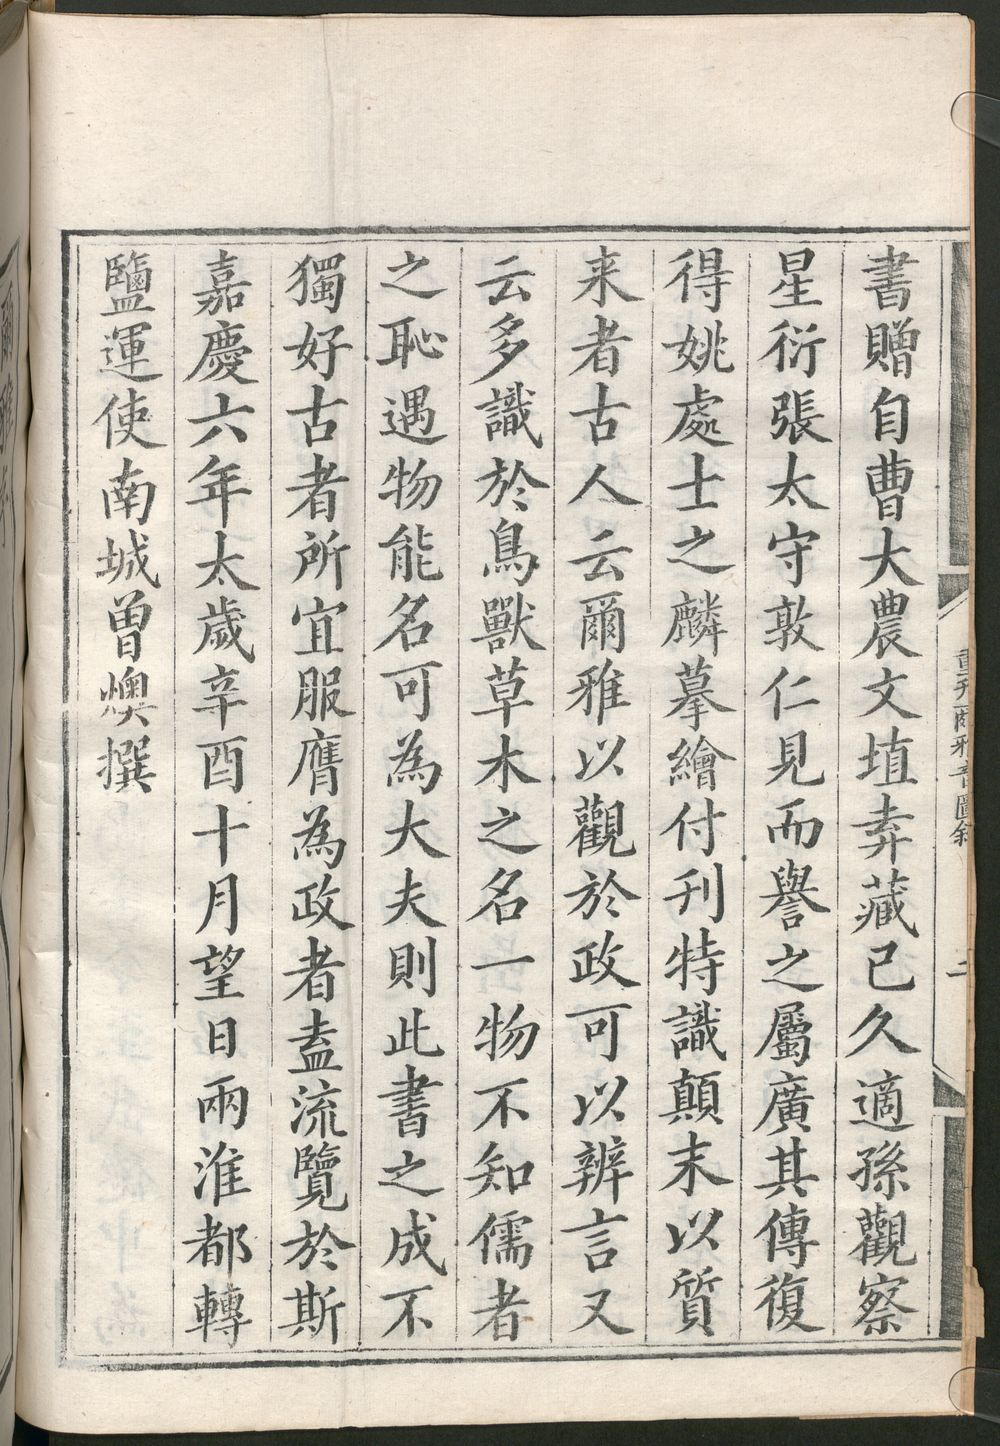 書贈自曹大農文埴弆藏已久適孫觀察
星衍張太守敦仁見而譽之屬廣其傳復
得姚處士之麟摹繪付刊特識顛末以質
来者古人云爾雅以觀於政可以辨言又
云多識於鳥獸草木之名一物不知儒者
之恥遇物能名可為大夫則此書之成不
獨好古者所宜服膺為政者盍流覽於斯
嘉慶六年太歲辛酉十月望日兩淮都轉
鹽運使南城曾燠撰
重刋爾雅音圖敘
二